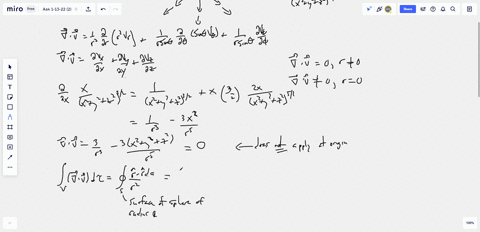 miro Ask 1-13-22 (2) Share
(x²+y²+z²)^{3/2}
∇⃗·v⃗ = 1/r² ∂/∂r (r² v_r) + 1/(r sinθ) ∂/∂θ (sinθ v_θ) + 1/(r sinθ) ∂v_φ/∂φ
∇⃗·v⃗ = ∂v_x/∂x + ∂v_y/∂y + ∂v_z/∂z
∇⃗·v⃗ = 0, r≠0
∇⃗·v⃗ ≠ 0, r=0
∂/∂x x/(x²+y²+z²)^{3/2} = 1/(x²+y²+z²)^{3/2} + x(-3/2) 2x/(x²+y²+z²)^{5/2}
= 1/r³ - 3x²/r⁵
∇⃗·v⃗ = 3/r³ - 3(x²+y²+z²)/r⁵ = 0 ← does not apply at origin
∫_V (∇⃗·v⃗) dτ = ∮_S r̂·r̂ da/r² =
surface of sphere of
radius R
100%